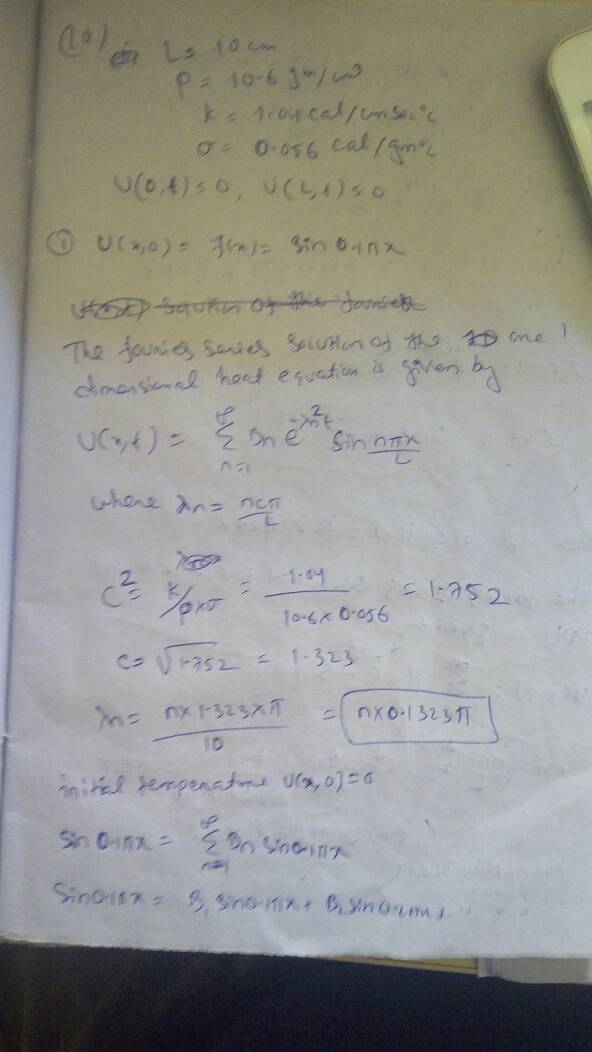 (10) L = 10 cm
ρ = 10.6 gm/cm³
k = 1.04 cal/cm sec °c
σ = 0.056 cal/gm °c
U(0,t) = 0, U(L,t) = 0
① U(x,0) = f(x) = sin 0.1πx
The fourier series solution of the one
dimensional heat equation is given by
U(x,t) = ∞ Σ n=1 Bn e^-λn²t sin nπx/L
where λn = ncπ/L
c² = k/ρ×σ = 1.04/10.6×0.056 = 1.752
c = √1.752 = 1.323
λn = n×1.323×π/10 = n×0.1323π
initial temperature U(x,0) = 0
sin 0.1πx = ∞ Σ n=1 Bn sin 0.1πx
sin 0.1πx = B₁ sin 0.1πx +